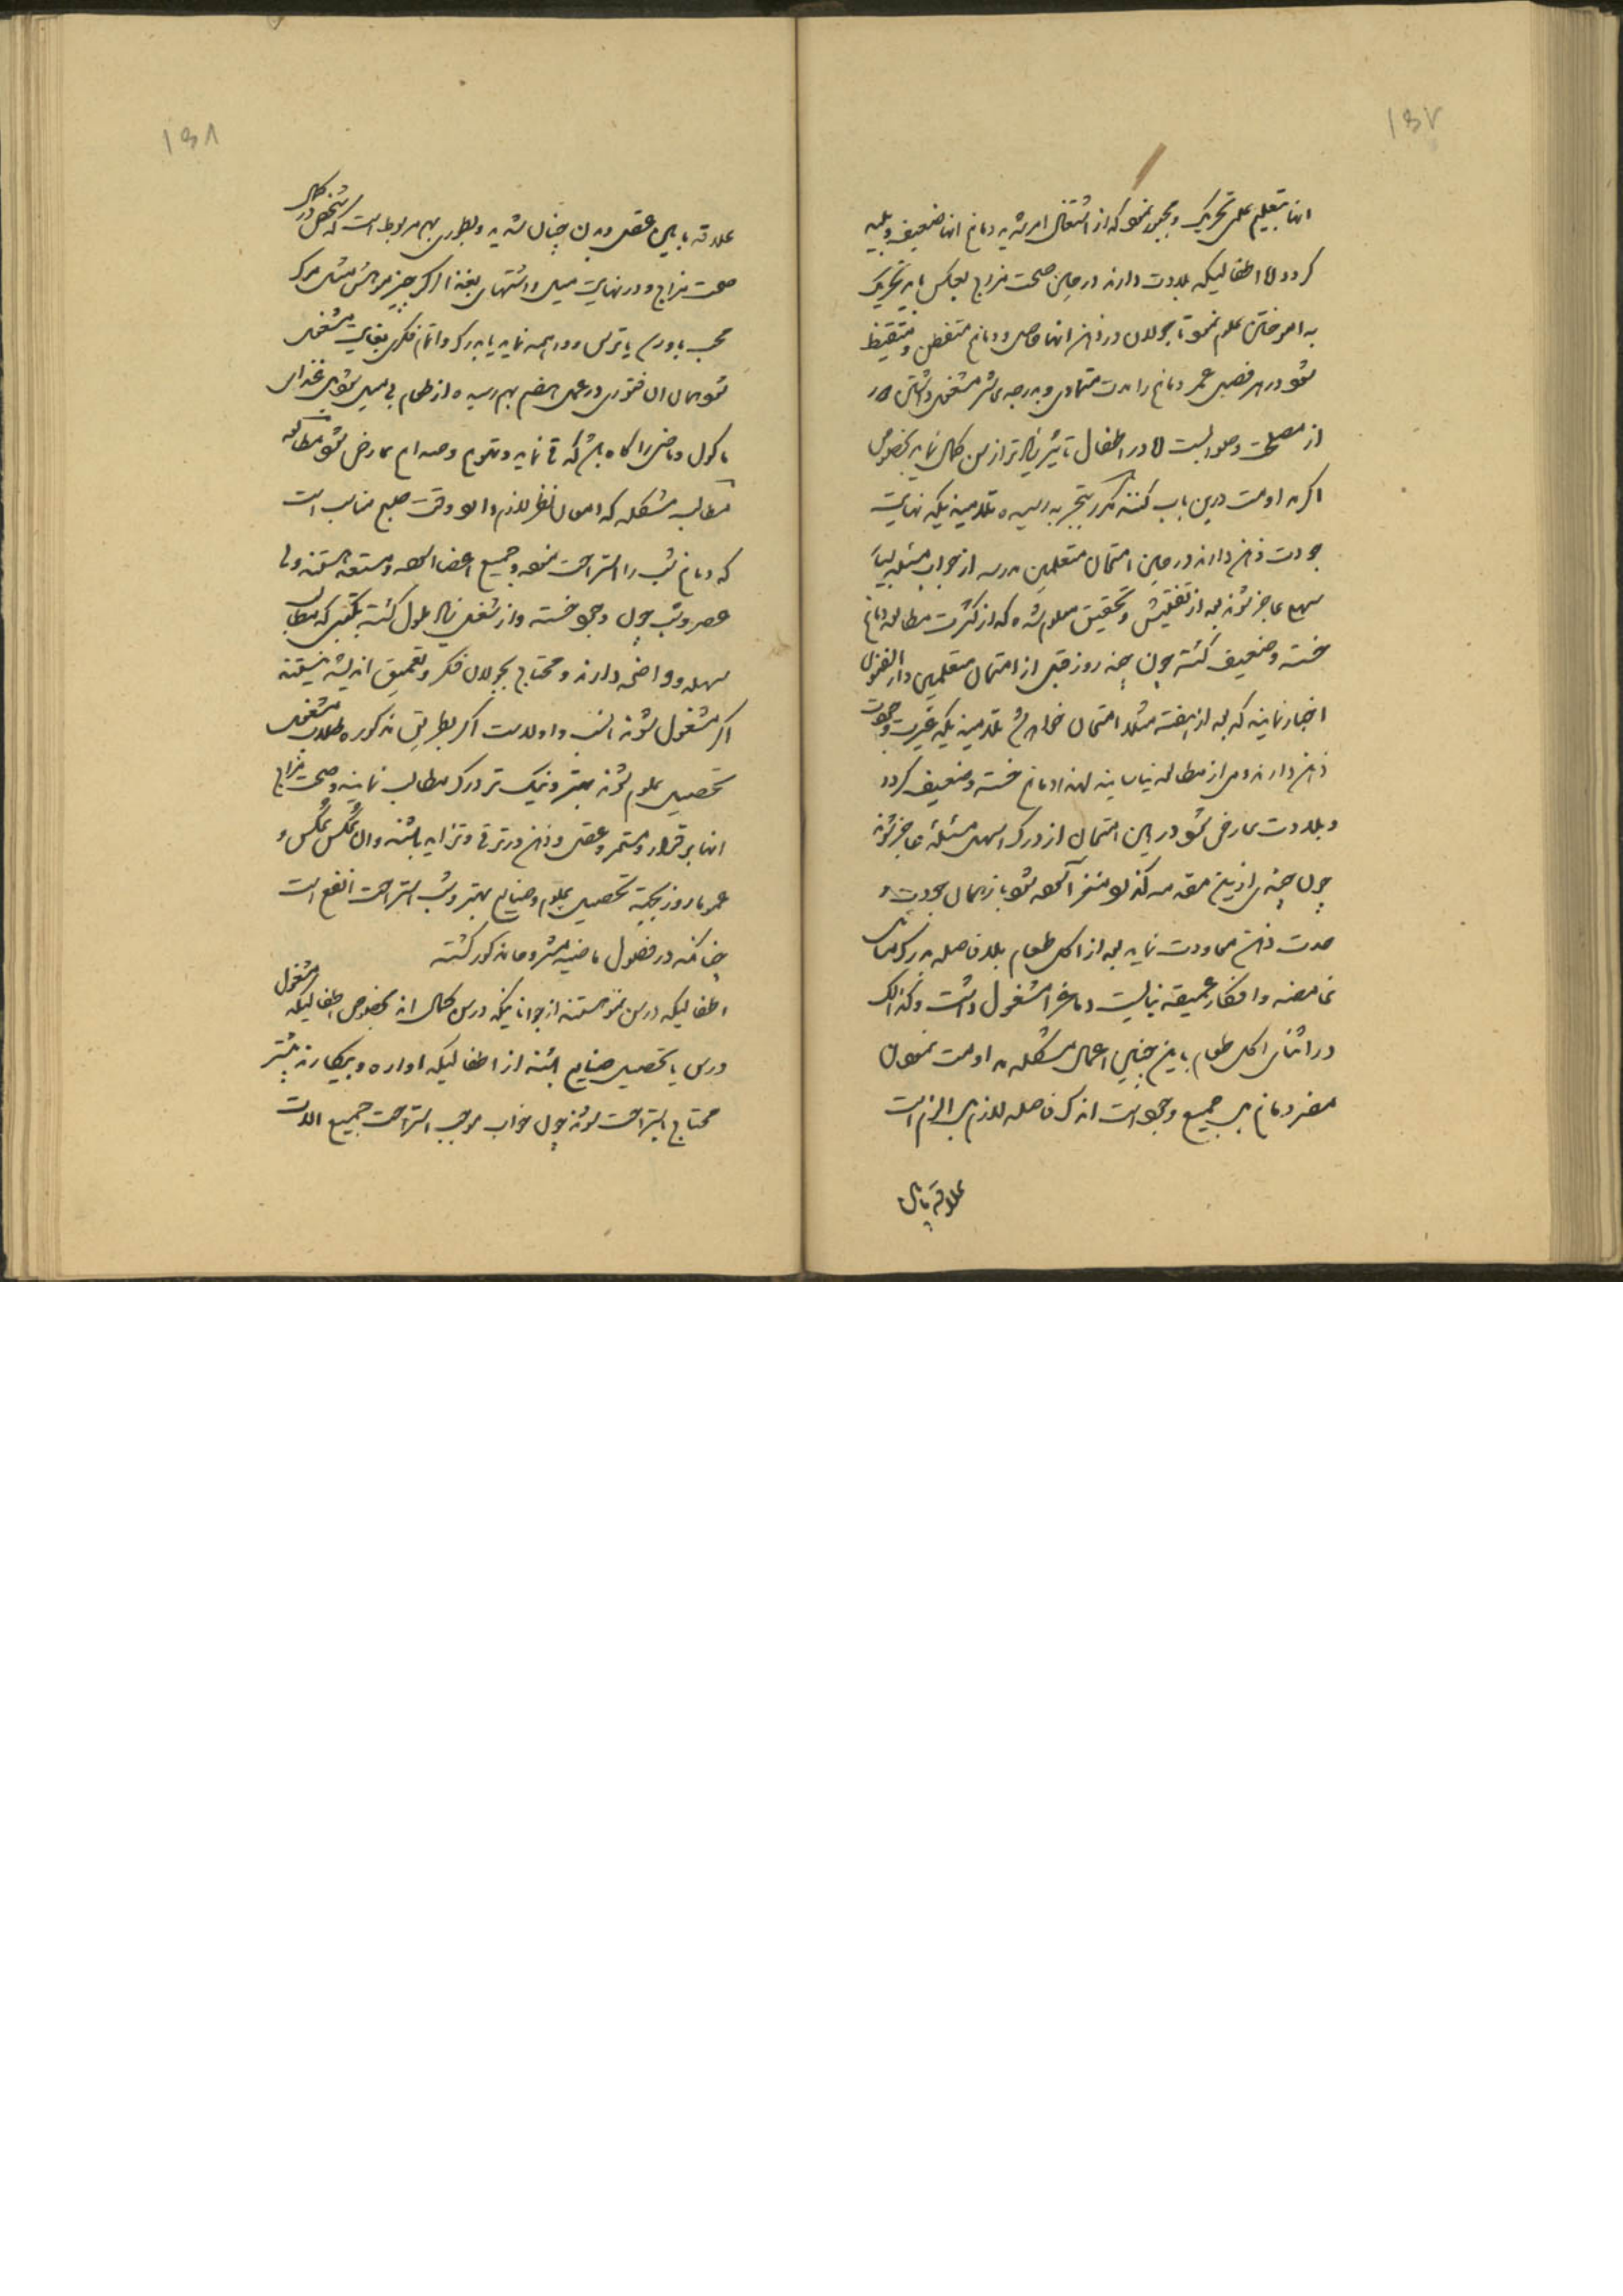 ۱۵۷
انها بتعلیم علمی تحریک و مجبور نمود که از اشتغال امر شدید دماغ انها ضعیف و بلید
گردد اما اطفالیکه بلادت دارند در حین صحت مزاج بعکس باید تحریک
به امر ختن علم نمود تا جولان در ذهن انها حاصل و دماغ متفطن و متیقظ
شود در هر فصل عمر دماغ را مدت متمادی و بدرجه مشغول داشتن دور
از مصلحت و صوابست اما در اطفال تاثیر زیادتر از سن کمال نماید بخصوص
اگر مداومت درین باب کنند مکرر بتجربه رسیده تلامیذیکه نهایت
جودت ذهن دارند در حین امتحان متعلمین مدرسه از جواب مسئله بسیار
سهل عاجز شوند بعد از تفتیش و تحقیق معلوم شده که از کثرت مطالعه دماغ
خسته و ضعیف گشته چون چند روز قبل از امتحان متعلمین دار الفنون
اخبار نمایند که بعد از هفته مثلا امتحان خواهد شد تلامیذیکه غیرت و جودت
ذهن دارند سعی از مطالعه نیاسایند لهذا دماغ خسته و ضعیف گردد
و بلادت عارض شود در این امتحان از درک اسهل مسئله عاجز شوند
چون چندی ازین مقدمه گذرد و مغز آسوده شود باز همان جودت و
حدت ذهن معاودت نماید بعد از اکل طعام بلافاصله بدرک مسائل
غامضه و افکار عمیقه نبایست دماغ را مشغول داشت و کذالک
در اثنای اکل طعام باین چنین اعمال مشکله مداومت نمودن
مضر دماغ بل جمیع وجود است اندک فاصله لازم بل الزم است
علاقه مابین
۱۵۸
علاقه مابین عقل و بدن چنان شدید و بطوری بهم مربوط است که شخص در کمال
صحت مزاج و در نهایت میل و اشتهای بغذا اگر چیز موحش مثل مرگ
محب یا ورم یا ترس و واهمه نماید یا بدرک و اتمام فکری بغایت مشغول
شود همان آن فتوری در عمل هضم بهم رسیده از طعام بی میل شود بل غذای
ماکول و ماضی را گاه باشد که قی نماید و تهوع و صداع عارض شود مطالعه
مطالب مشکله که امعان نظر لازم دارد وقت صبح مناسب است
که دماغ شب را استراحت نموده و جمیع اعضا آسوده و مستعد هستند ولی
عصر و شب چون وجود خسته و از شغل زیاد ملول گشته بکتبی که مطالب
سهله و واضحه دارند و محتاج بجولان فکر و تعمیق اندیشه نیستند
اگر مشغول شوند انسب و اولاست اگر بطریق مذکوره طلاب مشغول
تحصیل علوم شوند بهتر و نیک تر درک مطالب نمایند و صحت مزاج
انها برقرار و مستمر و عقل و ذهن در ترقی و تزاید باشند و الا بعکس بعکس و
عموما روز بجهة تحصیل علوم و صنایع بهتر و شب استراحت انفع است
چنانکه در فصول ماضیه مشروحا مذکور گشته
اطفالیکه در سن نمو هستند از جوانانیکه در سن کمال اند بخصوص اطفالیکه مشغول
درس یا تحصیل صنایع باشند از اطفالیکه اواره و بیکارند بیشتر
محتاج باستراحت شوند چون خواب موجب استراحت جمیع الات